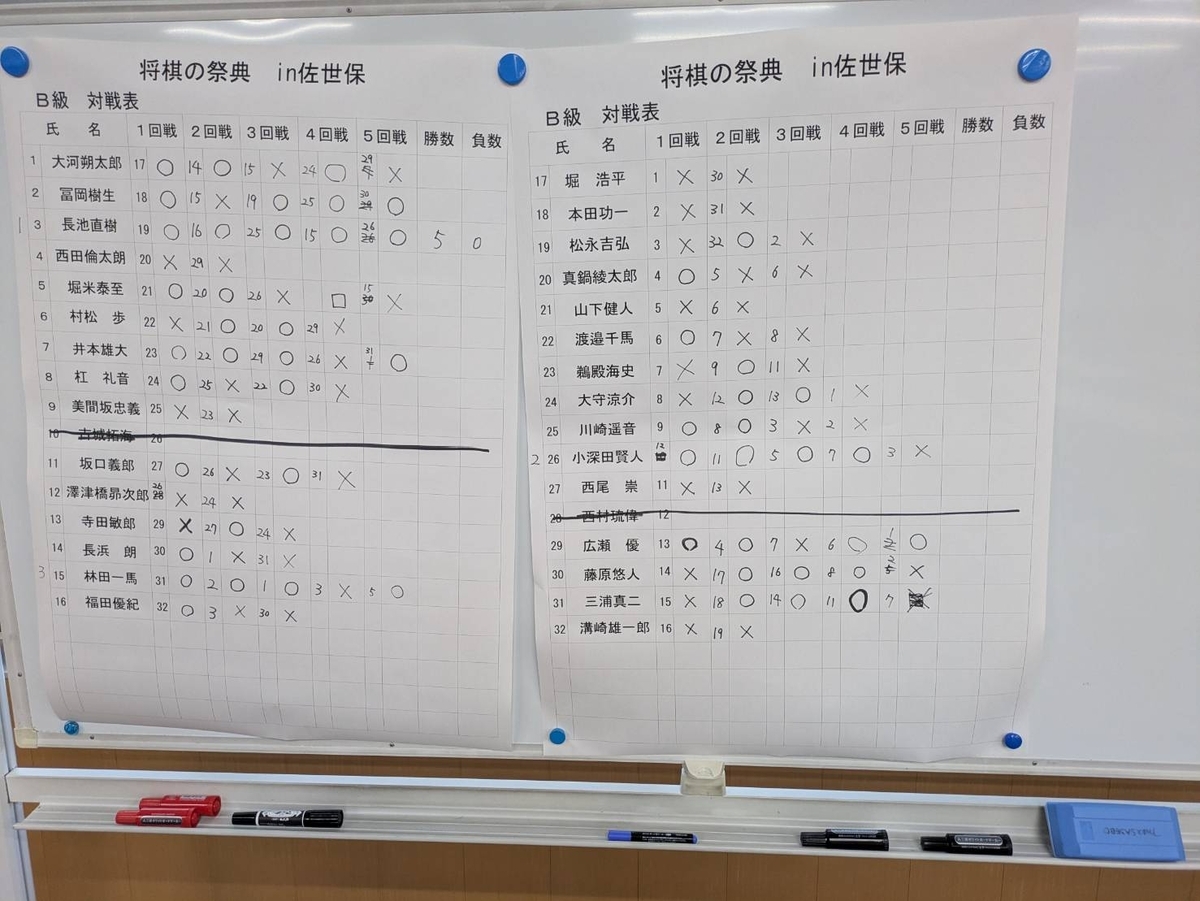 将棋の祭典 in佐世保
B級 対戦表
氏 名 1回戦 2回戦 3回戦 4回戦 5回戦 勝数 負数
1 大河朔太郎 17 ○ 14 ○ 15 × 24 ○ 29 ×
2 冨岡樹生 18 ○ 15 × 19 ○ 25 ○ 30 ○
1 3 長池直樹 19 ○ 16 ○ 25 ○ 15 ○ 26 ○ 5 0
4 西田倫太朗 20 × 29 ×
5 堀米泰至 21 ○ 20 ○ 26 × □ 15 ×
6 村松 歩 22 × 21 ○ 20 ○ 29 ×
7 井本雄大 23 ○ 22 ○ 29 ○ 26 × 31 ○
8 杠 礼音 24 ○ 25 × 22 ○ 30 ×
9 美間坂忠義 25 × 23 ×
10 古城拓海 26
11 坂口義郎 27 ○ 26 × 23 ○ 31 ×
12 澤津橋昴次郎 26 × 24 ×
13 寺田敏郎 29 × 27 ○ 24 ×
14 長浜 朗 30 ○ 1 × 31 ×
3 15 林田一馬 31 ○ 2 ○ 1 ○ 3 × 5 ○
16 福田優紀 32 ○ 3 × 30 ×
将棋の祭典 in佐世保
B級 対戦表
氏 名 1回戦 2回戦 3回戦 4回戦 5回戦 勝数 負数
17 堀 浩平 1 × 30 ×
18 本田功一 2 × 31 ×
19 松永吉弘 3 × 32 ○ 2 ×
20 真鍋綾太郎 4 ○ 5 × 6 ×
21 山下健人 5 × 6 ×
22 渡邉千馬 6 ○ 7 × 8 ×
23 鵜殿海史 7 × 9 ○ 11 ×
24 大守涼介 8 × 12 ○ 13 ○ 1 ×
25 川崎遥音 9 ○ 8 ○ 3 × 2 ×
2 26 小深田賢人 12 ○ 11 ○ 5 ○ 7 ○ 3 ×
27 西尾 崇 11 × 13 ×
28 西村琉偉 12
29 広瀬 優 13 ○ 4 ○ 7 × 6 ○ 1 ○
30 藤原悠人 14 × 17 ○ 16 ○ 8 ○ 2 ×
31 三浦真二 15 × 18 ○ 14 ○ 11 ○ 7 ×
32 溝崎雄一郎 16 × 19 ×